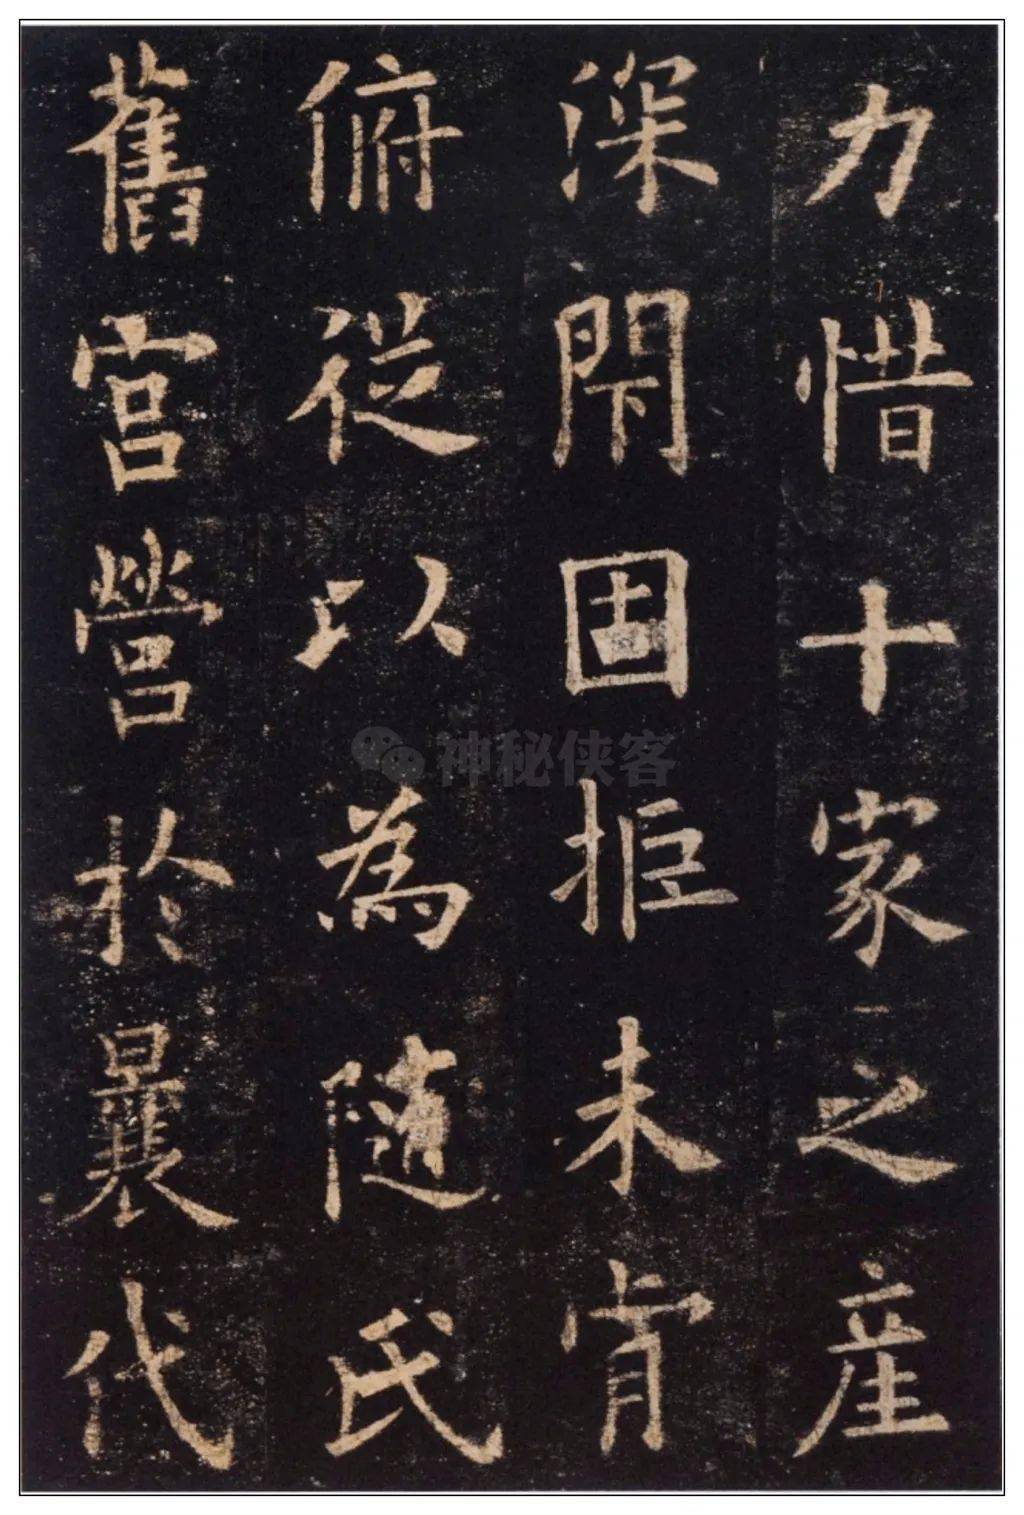 力惜十家之産
深閇固拒未肯
俯從以為隨氏
舊宮營於曩代
神秘侠客